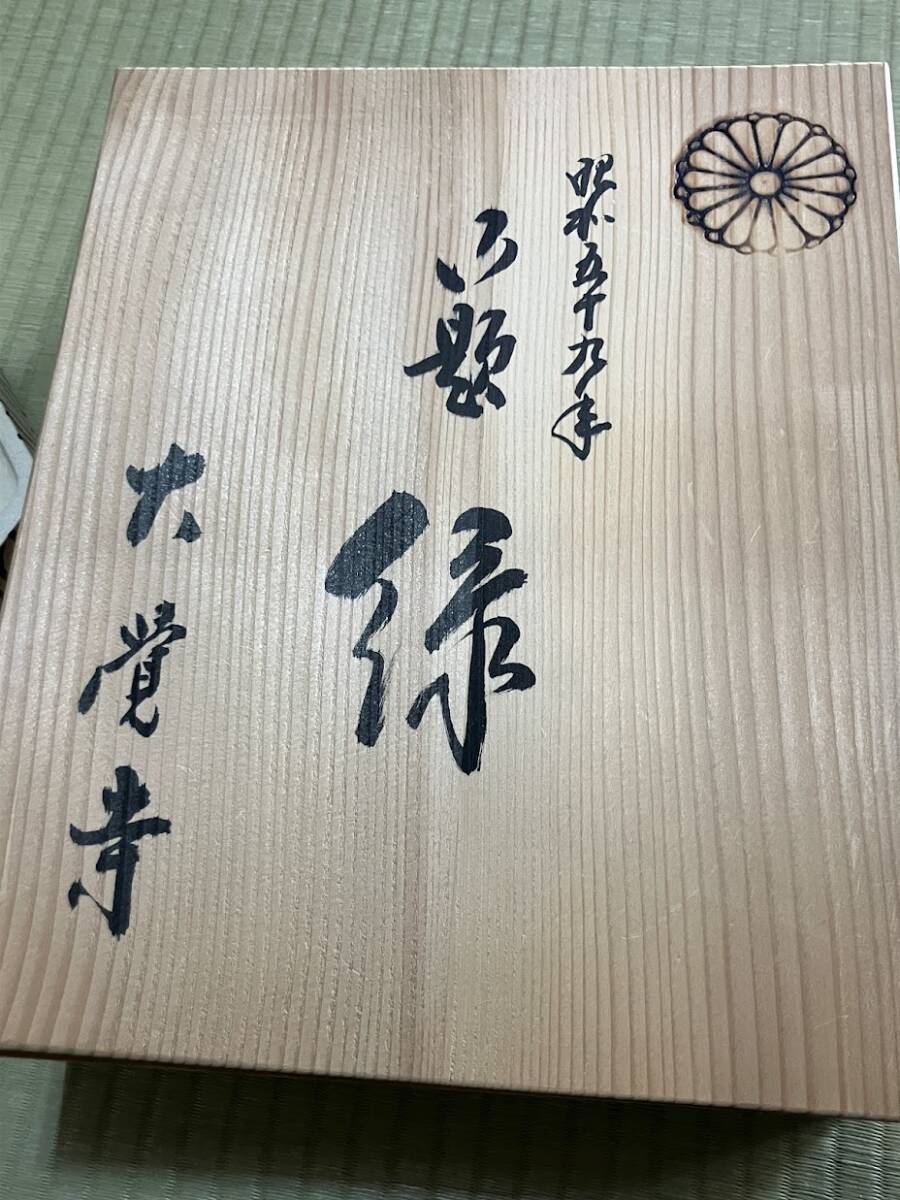 昭和五十九年
御題
緑
大覺寺